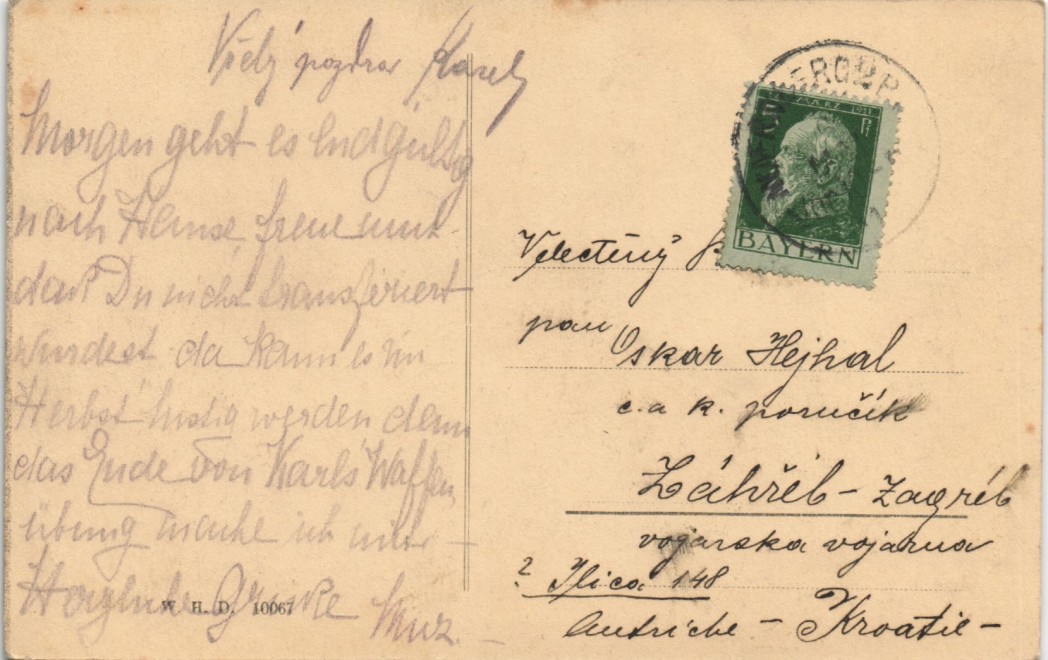 Vřelý pozdrav Karel
Morgen geht es endgültig
nach Hause, freue mich
daß Du nicht transferiert
wurdest da kann es im
Herbst lustig werden denn
das Ende von Karls Waffen
übung mache ich mit –
Herzliche Grüße
W. H. D. 10067
NÜRNBERG 2 B.P.
12. MÄRZ 1911
5 Pf
BAYERN
Velectěný
pan Oskar Hejhal
c. a k. poručík
Záhřeb – Zagréb
vojarska vojarna
? Ilica 148
Autriche – Kroatie –